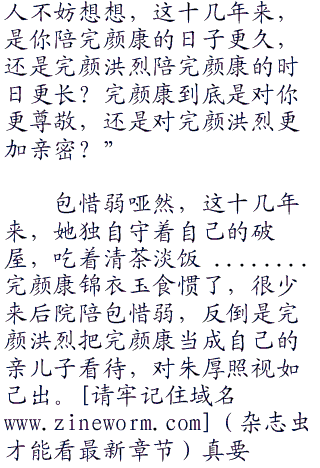 人不妨想想，这十几年来，
是你陪完颜康的日子更久，
还是完颜洪烈陪完颜康的时
日更长？完颜康到底是对你
更尊敬，还是对完颜洪烈更
加亲密？”
包惜弱哑然，这十几年
来，她独自守着自己的破
屋，吃着清茶淡饭 ........
完颜康锦衣玉食惯了，很少
来后院陪包惜弱，反倒是完
颜洪烈把完颜康当成自己的
亲儿子看待，对朱厚照视如
己出。[请牢记住域名
www.zineworm.com]（杂志虫
才能看最新章节）真要